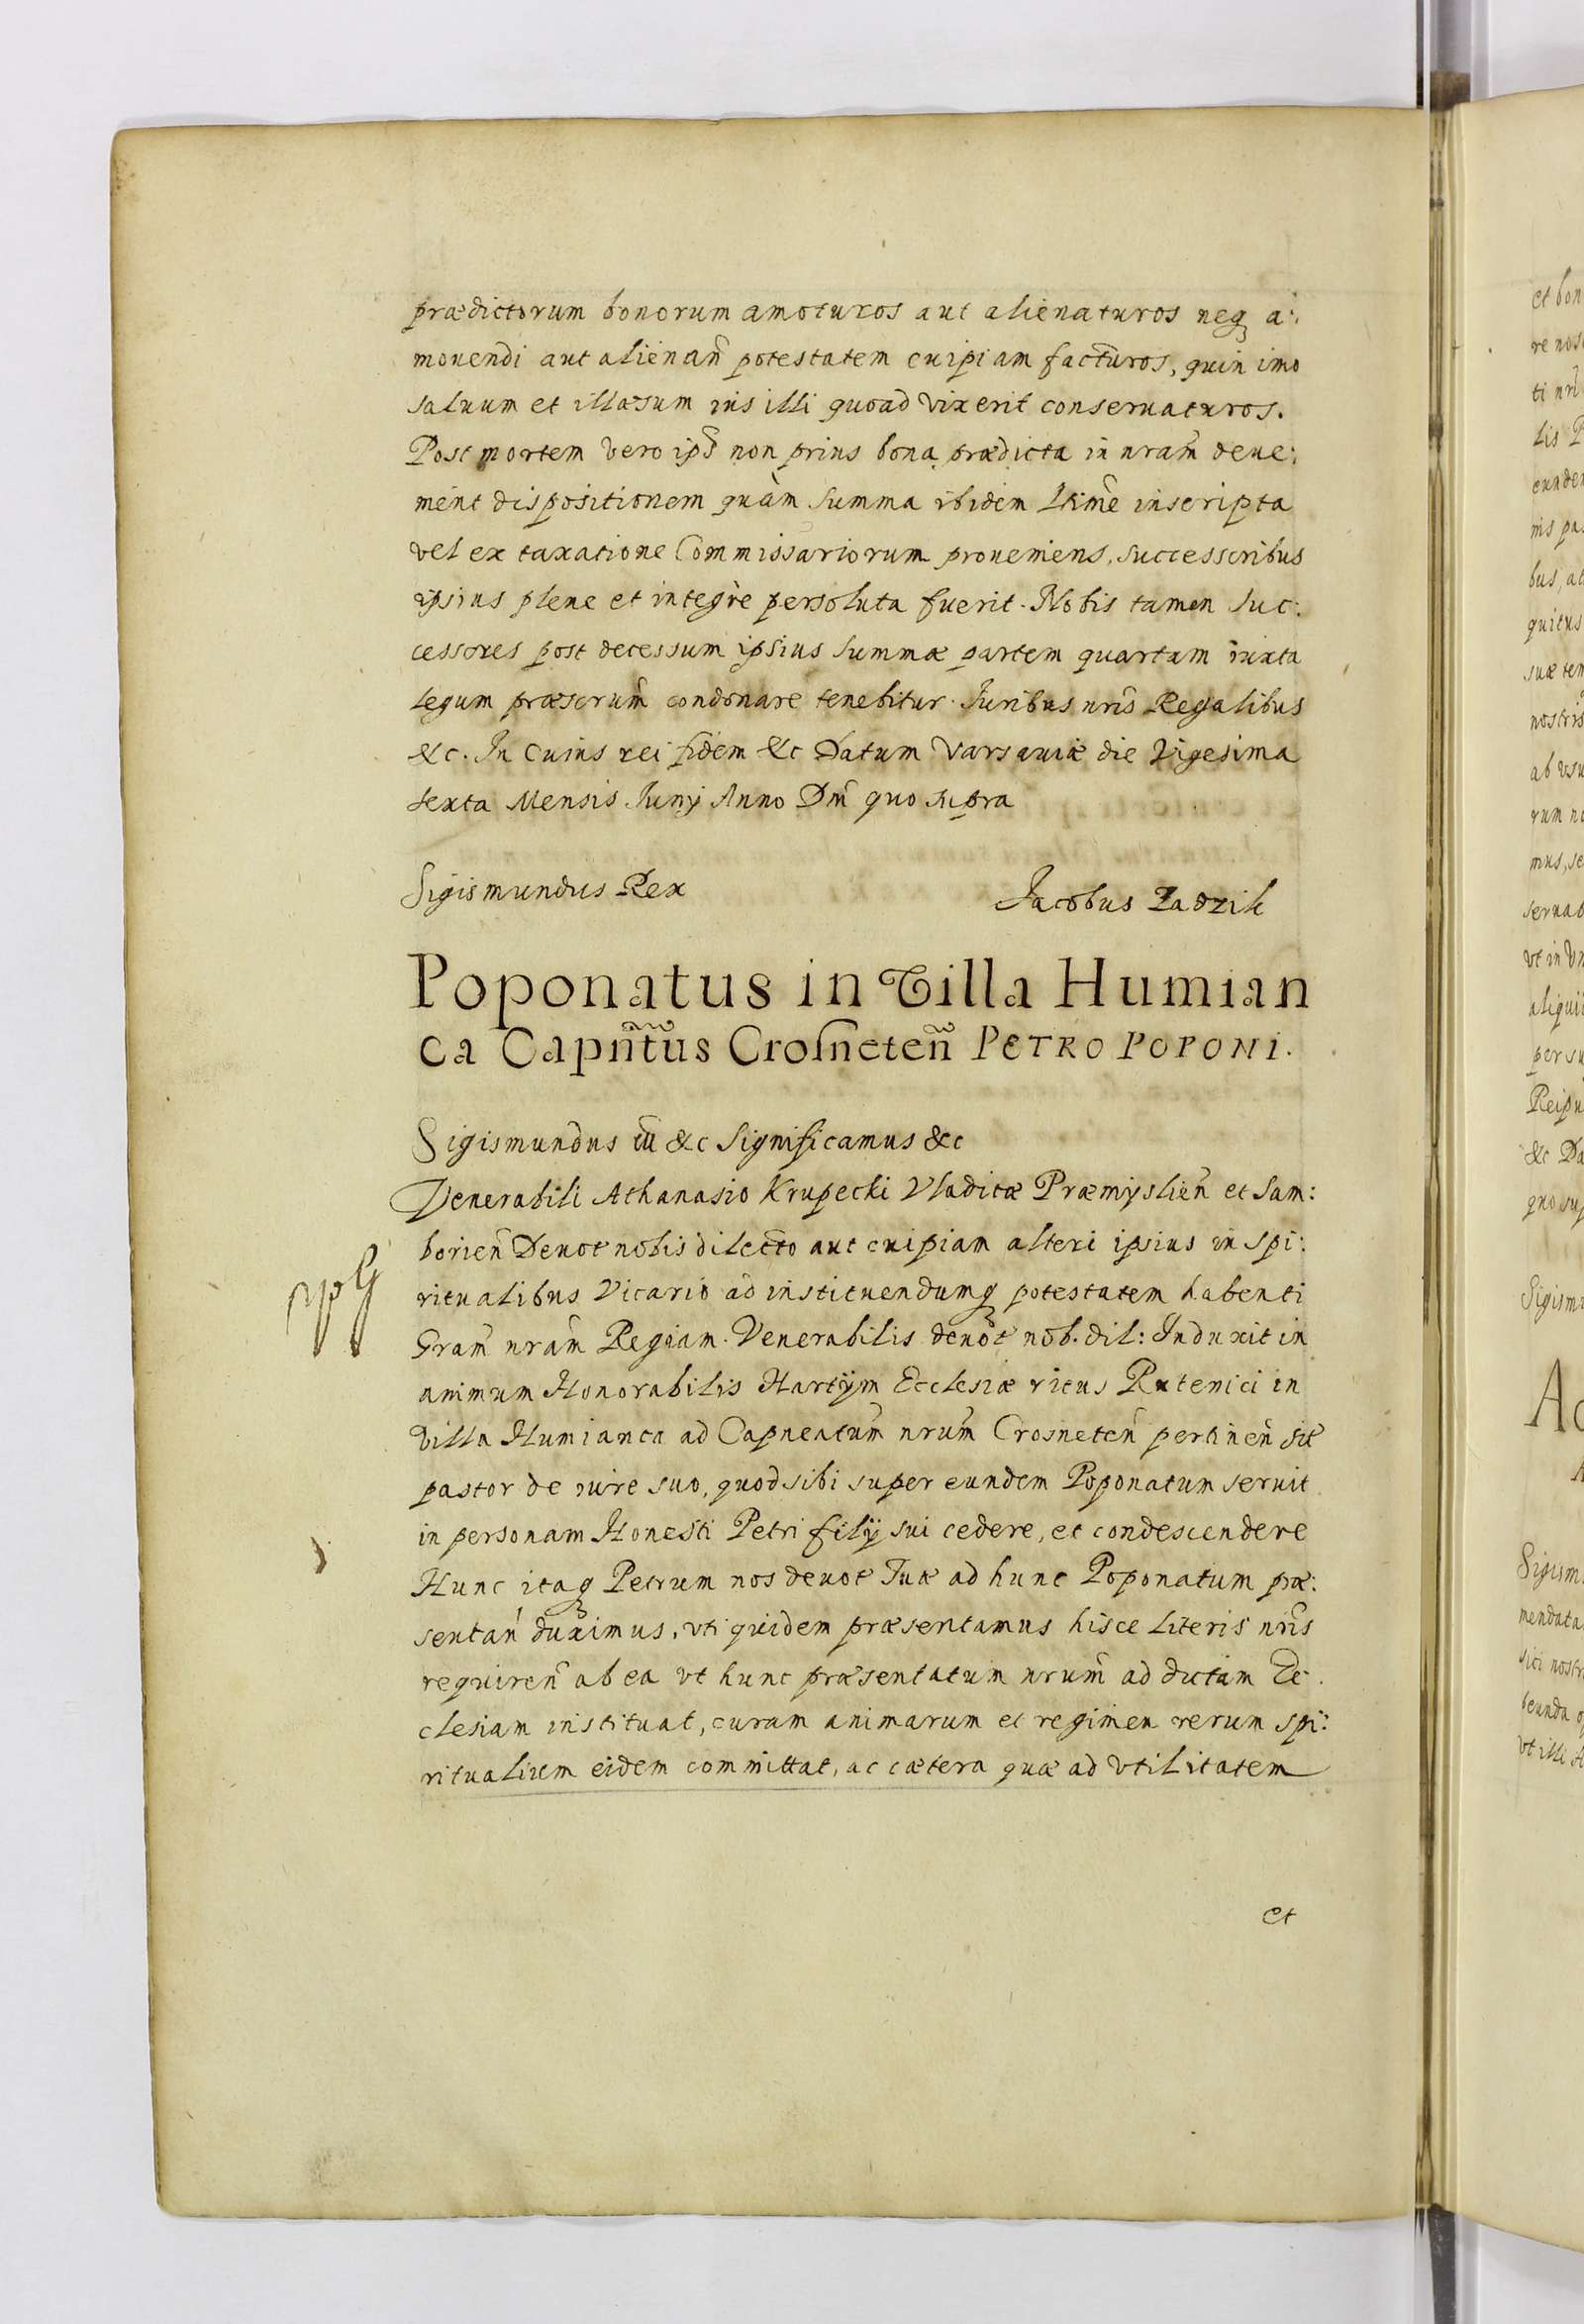 prædictorum bonorum amoturos aut alienaturos neq a:
mouendi aut alienañ potestatem cuipiam facturos, quin imo
saluum et illæsum ius illi quoad vixerit conseruaturos.
Post mortem vero ips non prius bona prædicta in nram deue:
nient dispositionem quàm summa ibidem ltime inscripta
vel ex taxatione Commissariorum proueniens, successoribus
ipsius plene et integre persoluta fuerit. Nobis tamen suc:
cessores post decessum ipsius summæ partem quartam iuxta
legum præscrum condonare tenebitur. Iuribus nris Regalibus
&c. In cuius rei fidem &c Datum Varsauiæ die Vigesima
sexta Mensis Iunij Anno Dni quo supra
Sigismundus Rex
Jacobus Zadzik
Poponatus in Villa Humian
ca Capntus Crosneteñ PETRO POPONI.
Sigismundus iii &c Significamus &c
Venerabili Athanasio Krupecki Vladicæ Præmyslieñ et Sam:
borieñ Deuot nobis dilecto aut cuipiam alteri ipsius in spi:
ritualibus Vicario ad instituendumq potestatem habenti
Gram nram Regiam. Venerabilis deuot nob. dil: Induxit in
animum Honorabilis Hartym Ecclesiæ ritus Rutenici in
villa Humianca ad Capneatum nrum Crosneteñ pertineñ sit
pastor de iure suo, quod sibi super eundem Poponatum seruit
in personam Honesti Petri filij sui cedere, et condescendere
Hunc itaq Petrum nos deuot Tuæ ad hunc Poponatum præ:
sentañ duximus, vti quidem præsentamus hisce literis nris
requireñ ab ea vt hunc præsentatum nrum ad dictam Ec
clesiam instituat, curam animarum et regimen rerum spi:
ritualium eidem committat, ac cætera quæ ad vtilitatem
et